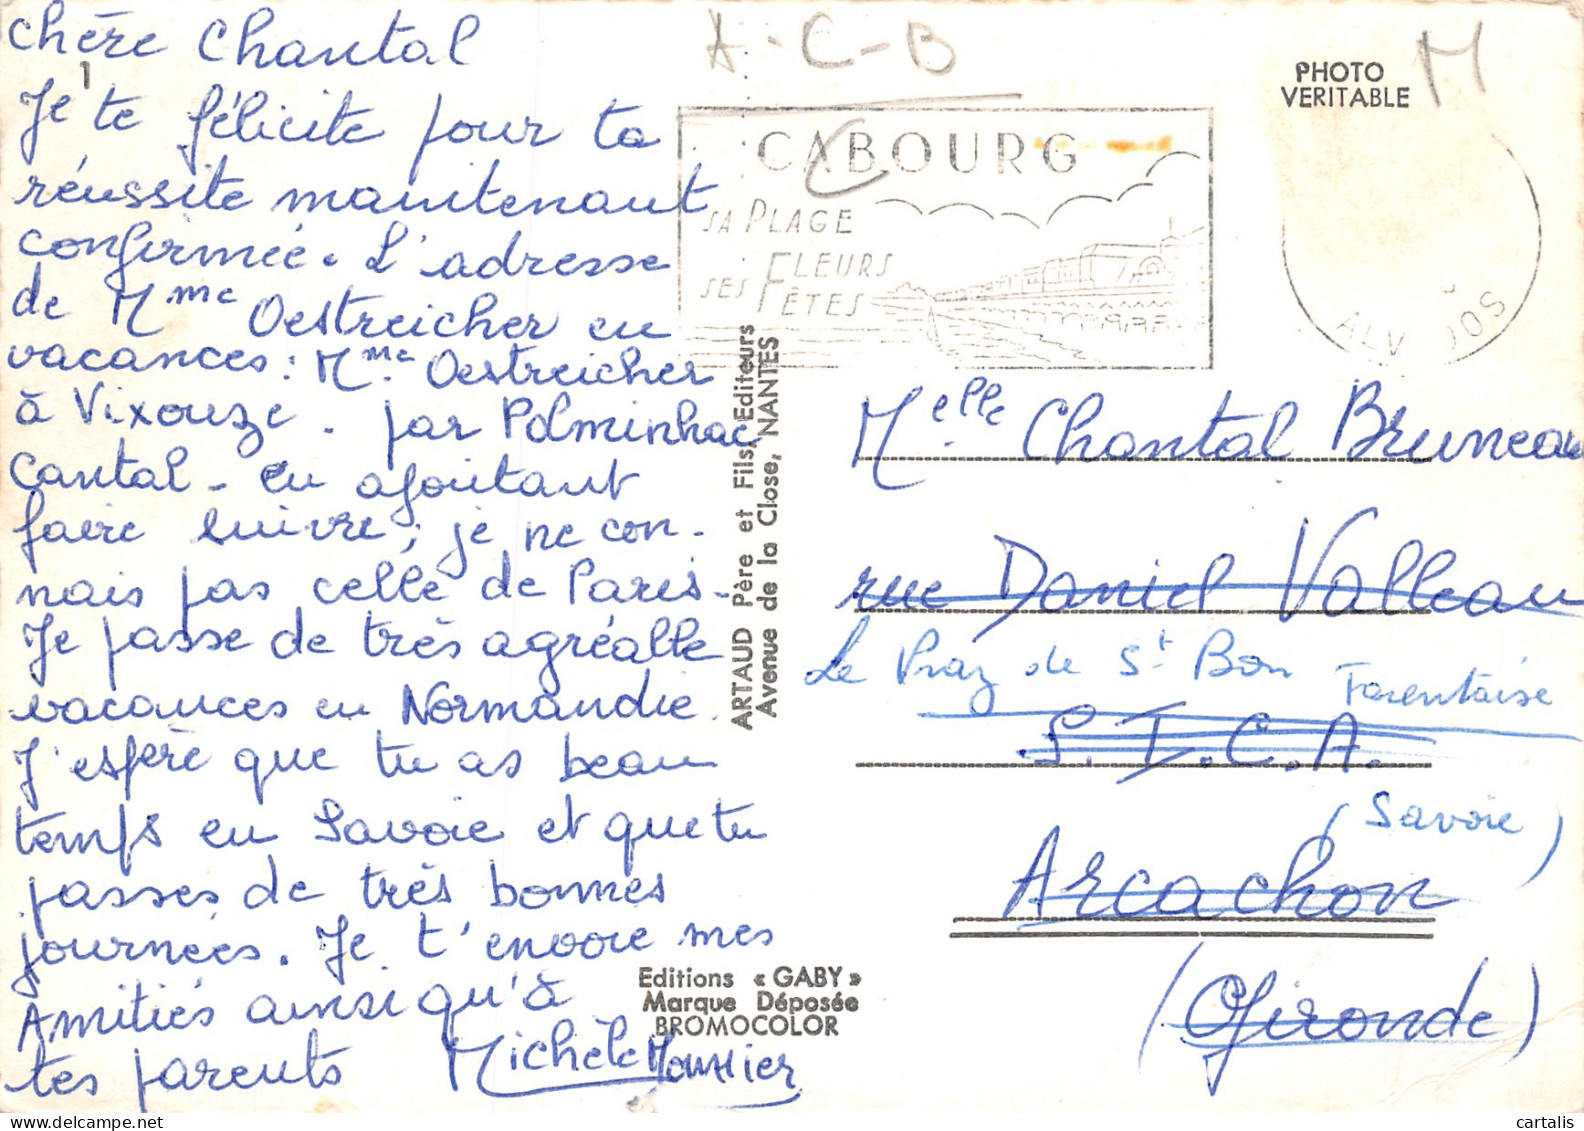 chère Chantal
Je te félicite pour ta
réussite maintenant
confirmée. L'adresse
de Mme Oestreicher en
vacances : Mme Oestreicher
à Vixouze. par Polminhac
Cantal - en ajoutant
faire suivre ; je ne con-
nais pas celle de Paris -
Je passe de très agréable
vacances en Normandie.
J'espère que tu as beau
temps en Savoie et que tu
passes de très bonnes
journées. Je t'envoie mes
Amitiés ainsi qu'à
tes parents Michèle
A-C-B
M
PHOTO
VERITABLE
CABOURG
SA PLAGE
SES FLEURS
FÊTES
CALVADOS
ARTAUD Père et Fils, Editeurs
Avenue de la Close, NANTES
Melle Chantal Bruneau
rue Daniel Valleau
Le Praz de St Bon Tarentaise
S.I.C.A.
(Savoie)
Arcachon
(Gironde)
Editions « GABY »
Marque Déposée
BROMOCOLOR
cartalis